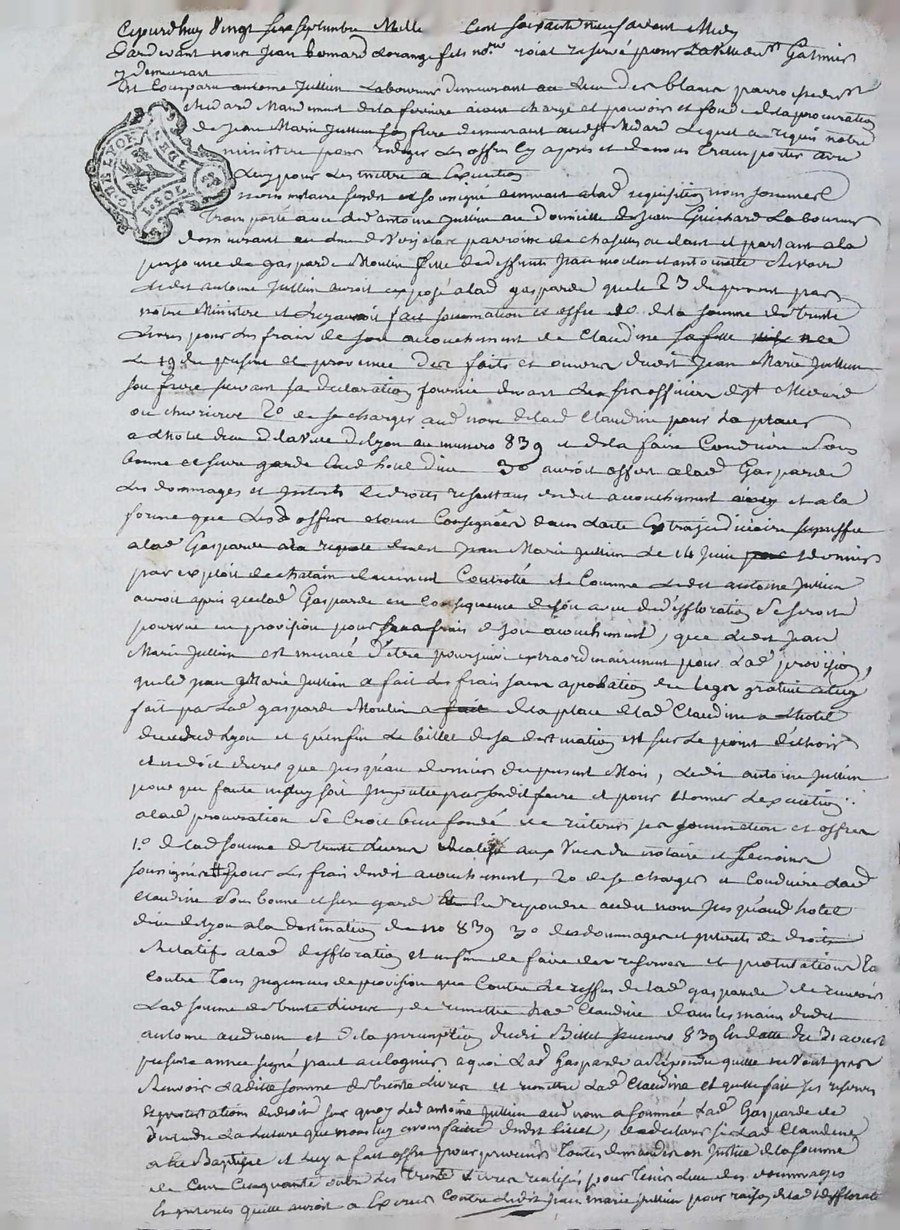 Cejourdhuy vingt six septembre Mille Cent soixante neuf avant Midy
Pardevant nous Jean Bernard Lorange fils no.re roial reservé pour La ville de St Galmier
y demeurant
Est Comparu antoine Jullien Laboureur demeurant au Lieu des blancs parroisse de St
Medard Mandement de la ayant charge et pouvoir et fondé de la procuration
de Jean Marie Jullien son frere demeurant audit St Medard Lequel a requis notre
ministere pour rediger Les offres cy apres et de nous transporter avec
Luy pour Les mettre a Execution
nous notaire susdit et soussigné aux requisitions nous sommes
Transporté avec led antoine Jullien au Domicille de Jean Guichard Laboureur
demeurant au lieu de parroisse de chazelles et parlant a la
personne de gasparde Moulin fille de deffunts Jean moulin et antoinette
Ledit antoine Jullien auroit exposé a lad gasparde que le 23 du present par
notre Ministere il Luy auroit fait sommation et offre de la somme de trente
Livres pour les frais de son acouchement de Claudine sa fille née
Le 19 du present et provenue des faits et oeuvres dudit Jean Marie Jullien
son frere suivant sa declaration fournie devant Les sieurs officiers de St Medard
ou chevrieres 2o de se charger aud nom de lad Claudine pour La placer
a Lhotel dieu de La ville de Lyon au numero 839 et de la faire Conduire sous
bonne et sure garde aud hotel dieu 3o auroit offert a lad Gasparde
Les dommages et interets Et droits resultans dudit acouchement et a la
forme que Lesd offres etoient Consignées dans Lacte Extrajudiciaire
a lad Gasparde a la requete dudit Jean Marie Jullien Le 14 Juin dernier
par exploit de chatain deument Controllé Et Comme Ledit antoine Jullien
auroit apris que lad Gasparde en Consequence de son de deffloration Se seroit
pourvue en provision pour frais de son acouchement, que Ledit Jean
Marie Jullien est menacé d'etre poursuivi extraordinairement pour Lad provision,
que led Jean Marie Jullien a fait des frais sans aprobation du gratuit a luy
fait par Lad gasparde Moulin a fait de la place de lad Claudine a Lhotel
dieu de Lyon et qu'enfin Le billet de sa destination est sur Le point d'échoir
et ne doit durer que jusqu'au dernier du present Mois, Ledit antoine Jullien
pour que faute ne luy soit Imputée par sondit frere et pour donner Lexecution
a lad procuration Se Croit bien fondé de reiterer ses sommation et offres
1o de lad somme de trente Livres realisée aux vues du notaire et temoins
soussignés pour Les frais dudit acouchement, 2o de se charger et Conduire Lad
Claudine sous bonne et sure garde en repondre audit nom jusqu'aud hotel
dieu de Lyon a la destination du no 839 3o des dommages et interets et droits
Relatifs a lad deffloration et enfin de faire des reserves et protestations Ta
Contre Tous jugemens de provision que Contre Le reffus de lad gasparde de recevoir
Lad somme de trente Livres, de remettre Lad Claudine dans les mains dudit
antoine aud nom et de la peremption dudit Billet numero 839 En datte du 31 aoust
presente année signé a quoi Lad Gasparde a Repondu quelle ne veut pas
Recevoir Ladite somme de trente Livres et remettre Lad Claudine et quelle fait ses reserves
et protestations de droit sur quoy Led antoine Jullien aud nom a sommé Lad Gasparde de
entendre La Lecture que nous luy avons faite dudit billet, de declarer si Lad Claudine
a été Baptisée et Luy a fait offre pour prevenir toutes demandes en Justice de la somme
de Cent Cinquante outre Les trente Livres realisés pour tenir lieu des dommages
interets quelle auroit a Exercer Contre Ledit Jean marie Jullien pour raison de lad deffloration